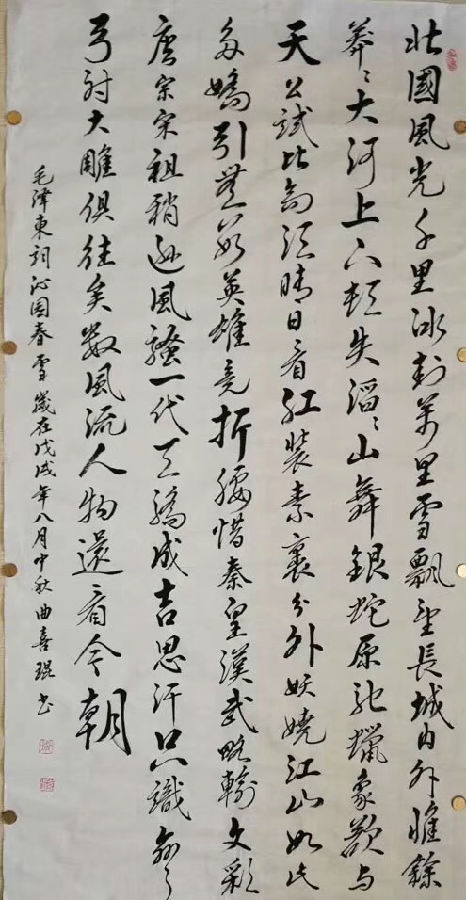 北國風光千里冰封萬里雪飄望長城內外惟餘
莽〻大河上下頓失滔〻山舞銀蛇原馳蠟象欲与
天公試比高須晴日看紅裝素裹分外妖嬈江山如此
多嬌引無數英雄竞折腰惜秦皇漢武略輸文彩
唐宗宋祖稍遜風騷一代天驕成吉思汗只識彎
弓射大雕俱往矣數風流人物還看今朝
毛澤東詞沁園春雪歲在戊戌年八月中秋曲喜琨书